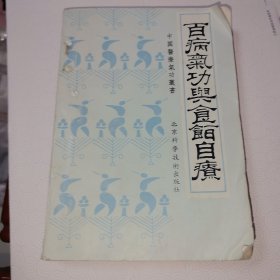 百病氣功與食餌自療
中国醫療氣功叢書
北京科学技術出版社